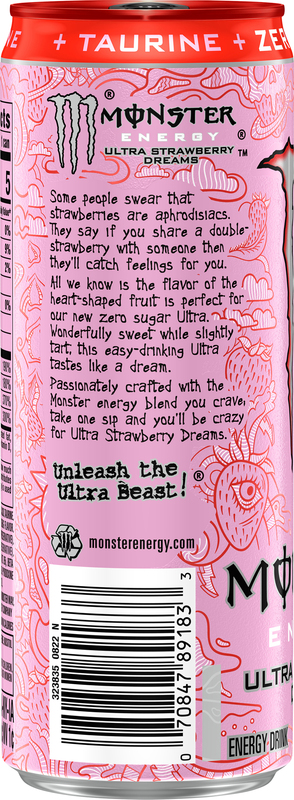 + TAURINE + ZER
MONSTER
ENERGY
ULTRA STRAWBERRY
DREAMS™
Some people swear that
strawberries are aphrodisiacs.
They say if you share a double-
strawberry with someone then
they'll catch feelings for you.
All we know is the flavor of the
heart-shaped fruit is perfect for
our new zero sugar Ultra.
Wonderfully sweet while slightly
tart, this easy-drinking Ultra
tastes like a dream.
Passionately crafted with the
Monster energy blend you crave,
take one sip and you'll be crazy
for Ultra Strawberry Dreams.
Unleash the
Ultra Beast!®
monsterenergy.com
323835 0822 N
0 70847 89183 3
cts
can
5
ENERGY DRINK